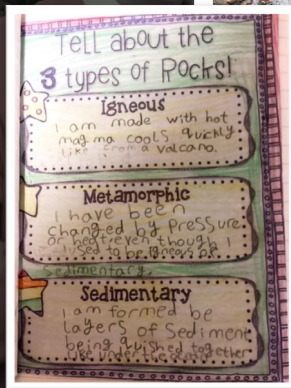 Tell about the
3 types of Rocks!
Igneous
I am made with hot
magma cools quickly
like from a volcano.
Metamorphic
I have been
changed by pressure
or heat even though I
used to be Igneous or
Sedimentary.
Sedimentary
I am formed be
layers of sediment
being quished together
like under the